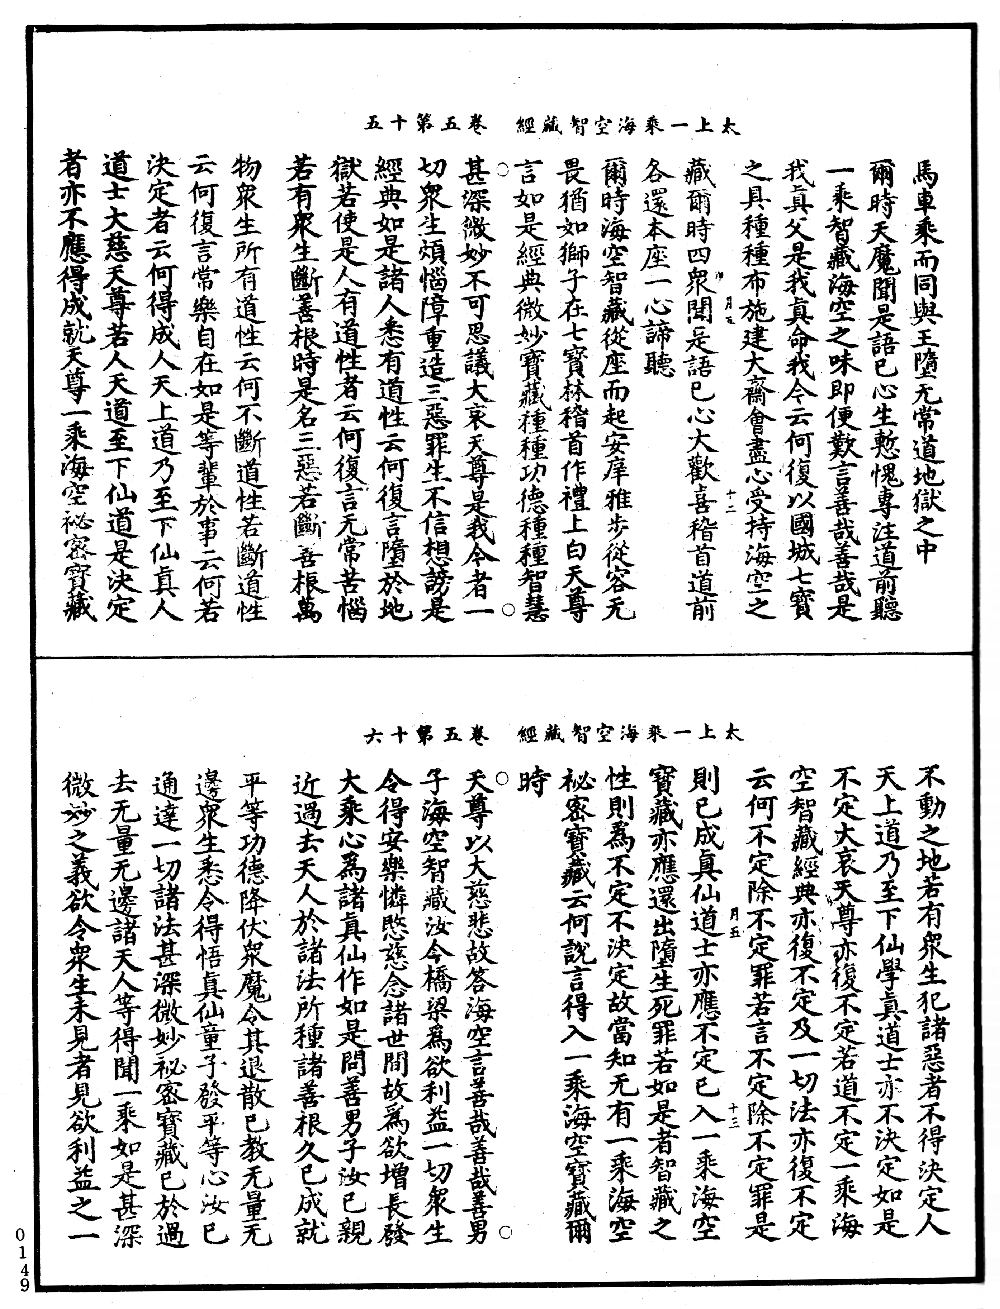 太上一乘海空智藏經　卷五第十五
馬車乘而同與王墮无常道地獄之中
爾時天魔聞是語已心生慙愧專注道前聽
一乘智藏海空之味即便歎言善哉善哉是
我真父是我真命我今云何復以國城七寶
之具種種布施建大齋會盡心受持海空之
月五　十二
藏爾時四衆聞是語已心大歡喜稽首道前
各還本座一心諦聽
爾時海空智藏從座而起安庠雅步從容无
畏猶如獅子在七寶林稽首作禮上白天尊
言如是經典微妙寶藏種種功德種種智慧
甚深微妙不可思議大哀天尊是我今者一
切衆生煩惱障重造三惡罪生不信想謗是
經典如是諸人悉有道性云何復言墮於地
獄若使是人有道性者云何復言无常苦惱
若有衆生斷善根時是名三惡若斷善根萬
物衆生所有道性云何不斷道性若斷道性
云何復言常樂自在如是等輩於事云何若
決定者云何得成人天上道乃至下仙真人
道士大慈天尊若人天道至下仙道是決定
者亦不應得成就天尊一乘海空祕密寶藏
太上一乘海空智藏經　卷五第十六
不動之地若有衆生犯諸惡者不得決定人
天上道乃至下仙學真道士亦不決定如是
不定大哀天尊亦復不定若道不定一乘海
空智藏經典亦復不定及一切法亦復不定
云何不定除不定罪若言不定除不定罪是
月五　十三
則已成真仙道士亦應不定已入一乘海空
寶藏亦應還出墮生死罪若如是者智藏之
性則為不定不決定故當知无有一乘海空
祕密寶藏云何說言得入一乘海空寶藏爾
時
天尊以大慈悲故答海空言善哉善哉善男
子海空智藏汝今橋梁為欲利益一切衆生
令得安樂憐愍慈念諸世間故為欲增長發
大乘心為諸真仙作如是問善男子汝已親
近過去天人於諸法所種諸善根久已成就
平等功德降伏衆魔令其退散已教无量无
邊衆生悉令得悟真仙童子發平等心汝已
通達一切諸法甚深微妙祕密寶藏已於過
去无量无邊諸天人等得聞一乘如是甚深
微妙之義欲令衆生未見者見欲利益之一
0149